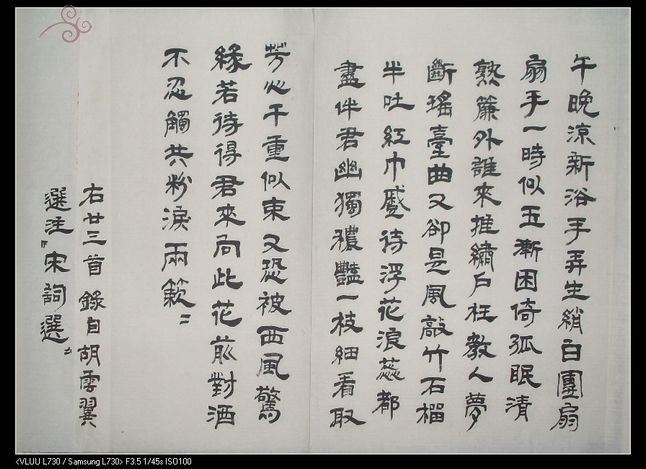 午晚涼新浴手弄生綃白團扇
扇手一時似玉漸困倚孤眠清
熟簾外誰來推繡戶枉教人夢
斷瑤臺曲又卻是風敲竹石榴
半吐紅巾蹙待浮花浪蕊都
盡伴君幽獨穠豔一枝細看取
芳心千重似束又恐被西風驚
綠若待得君來向此花前對酒
不忍觸共粉淚兩簌〻
右廿三首錄自胡雲翼
選注『宋詞選』
<VLUU L730 / Samsung L730> F3.5 1/45s ISO100